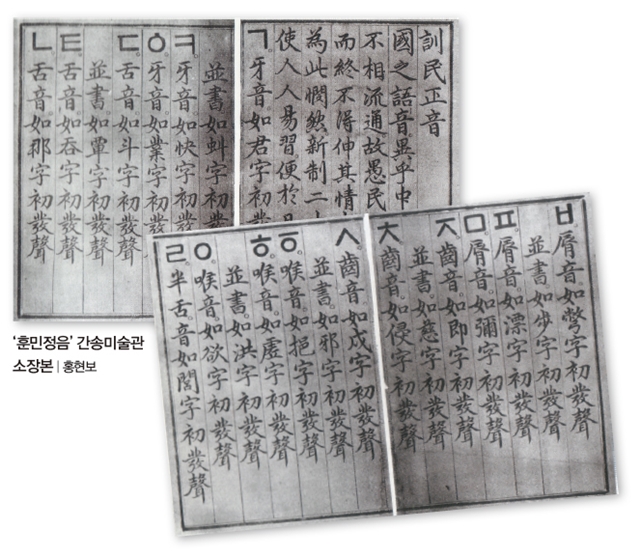 訓民正音
國之語音。異乎中
不相流通。故愚民
而終不得伸其情
為此憫然。新制二
使人人易習。便於日
ㄱ。牙音。如君字初發聲
並書。如虯字初發聲
ㅋ。牙音。如快字初發聲
ㆁ。牙音。如業字初發聲
ㄷ。舌音。如斗字初發聲
並書。如覃字初發聲
ㅌ。舌音。如呑字初發聲
ㄴ。舌音。如那字初發聲
ㅂ。脣音。如彆字初發聲
並書。如步字初發聲
ㅍ。脣音。如漂字初發聲
ㅁ。脣音。如彌字初發聲
ㅈ。齒音。如即字初發聲
並書。如慈字初發聲
ㅊ。齒音。如侵字初發聲
ㅅ。齒音。如戌字初發聲
並書。如邪字初發聲
ㆆ。喉音。如挹字初發聲
ㅎ。喉音。如虛字初發聲
並書。如洪字初發聲
ㅇ。喉音。如欲字初發聲
ㄹ。半舌音。如閭字初發聲
‘훈민정음’ 간송미술관
소장본 | 홍현보